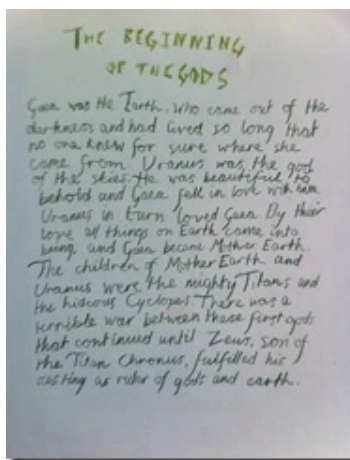 THE BEGINNING
OF THE GODS
Gaea was the Earth. Who came out of the
darkness and had lived so long that
no one knew for sure where she
came from. Uranus was the god
of the skies. He was beautiful to
behold and Gaea fell in love with him
Uranus in turn loved Gaea By their
love all things on Earth came into
being and Gaea became Mother Earth.
The children of Mother Earth and
Uranus were the mighty Titans and
the hideous Cyclopes There was a
terrible war between these first gods
that continued until Zeus, son of
the Titan Chronus, fulfilled his
as ruler of gods and earth.